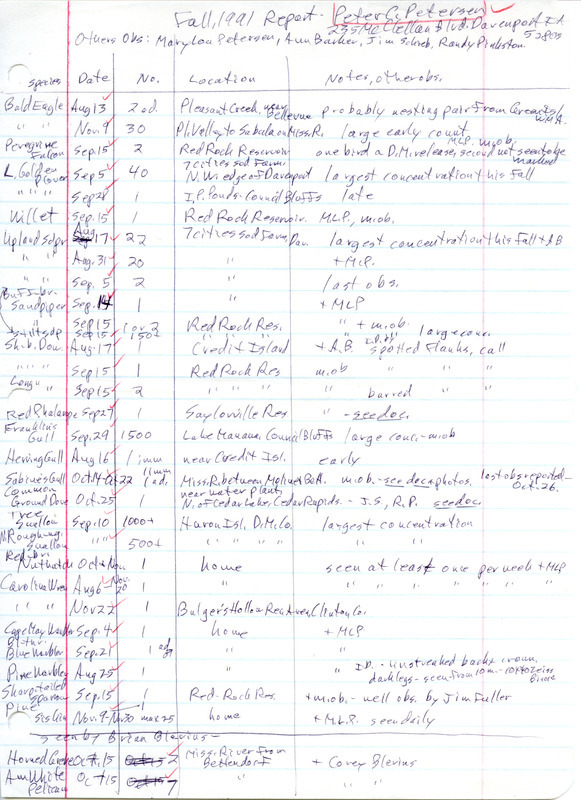 Fall, 1991 Report - Peter C. Petersen
235 McClellan Blvd. Davenport, IA
52803
Others Obs: Marylou Petersen, Ann Barker, Jim Schreb, Randy Pinkston
Species Date No. Location Notes, other obs.
Bald Eagle Aug 13 2 ad. Pleasant Creek, near Bellevue probably nesting pair from Green Isl W.M.A.
" " Nov. 9 30 Pl. Valley to Sabula on Miss. R. large early count
Peregrine Falcon Sep. 15 2 Red Rock Reservoir MLP, m.ob. one bird a D.M. release, second not seen to be marked
L. Golden Plover Sep 5 40 7 cities sod Farm N.W. edge of Davenport largest concentration this Fall
" " " Sep 28 1 I.P. Ponds. Council Bluffs late
Willet Sep. 15 1 Red Rock Reservoir. MLP, m.ob.
Upland Sdpr Aug. 17 22 7 cities sod Farm Dav. largest concentration this Fall + AB
" " Aug. 31 20 " + MLP.
" " Sep. 5 2 " last obs.
Buff-br. Sandpiper Sep. 14 1 " + MLP
" Sep 15 1 or 2 Red Rock Res. " + m.ob.
Stilt Sdp Sep 15 150+ " " large conc.
Sh.b. Dow. Aug. 17 1 Credit Island + A.B. I.D. by spotted flanks, call
" " Sep. 15 1 Red Rock Res m.ob " " "
Long " " Sep 15 2 " " barred " "
Red Phalarope Sep 27 1 Saylorville Res " - see doc.
Franklins Gull Sep. 29 1500 Lake Manawa, Council Bluffs large conc. - m.ob
Herring Gull Aug 16 1 imm near Credit Isl. early
Sabines Gull Oct 14-Oct 22 1 imm 1 ad. Miss. R. between Moline & B.A. near water plant m.ob. - see doc + photos. last obs reported - Oct. 26.
Common Ground Dove Oct. 25 1 N. of Cedar Lake, Cedar Rapids. - J.S., R.P. see doc.
Tree Swallow Sep. 10 1000+ Huron Isl. D.M. Co. largest concentration
N. Rough wing. Swallow " " 500+ " " " " " "
Red-br. Nuthatch Oct + Nov. 1 home seen at least once per week + MLP
Carolina Wren Aug 6 - Nov. 30 1 " " " " " " " "
" " Nov 22 1 Bulger's Hollow Rec. Area Clinton Co.
Cape May Warbler Sep. 4 1 home + MLP
Bl. thr. Blue Warbler Sep. 21 1 ad ♂ " "
Pine Warbler Aug 25 1 " " I.D. - unstreaked back + crown, dark legs - seen from 10m - 10x40 Zeiss Binoc
Sharp-tailed Sparrow Sep. 15 1 Red-Rock Res. + m.ob. - well obs. by Jim Fuller
Pine Siskin Nov. 9 - Nov 30 max 25 home + M.L.P. seen daily
Seen by Brian Blevins -
Horned Grebe Oct. 15 2 Miss. River from Bettendorf + Corey Blevins
Am White Pelican Oct 15 7 " " " "